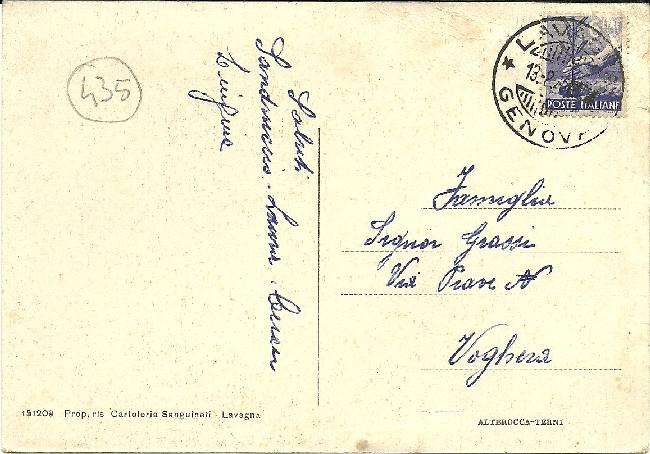 435
Saluti
Sandruccio. Laura.
Luigia
LAVAG
13-8
GENOVA
POSTE ITALIANE
Famiglia
Signor Grassi
Via Piave N
Voghera
151209 Prop. ris Cartoleria Sanguinati - Lavagna
ALTEROCCA-TERNI